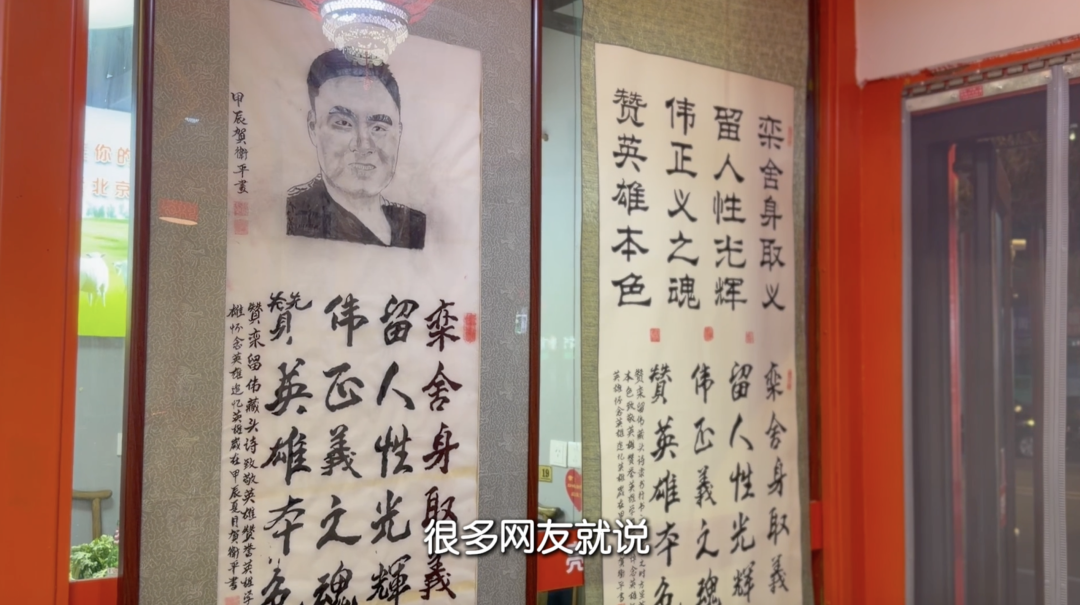 甲辰贺衛平畫
栾舍身取義
留人性光輝
伟正義之魂
贊英雄本色
贊栾留伟藏头诗致敬英雄贊誉英雄
雄怀念英雄追忆英雄歲在甲辰夏月贺衛平书
栾舍身取义
留人性光辉
伟正义之魂
赞英雄本色
栾舍身取義
留人性光輝
伟正義之魂
贊英雄本色
你的
北京
19
很多网友就说